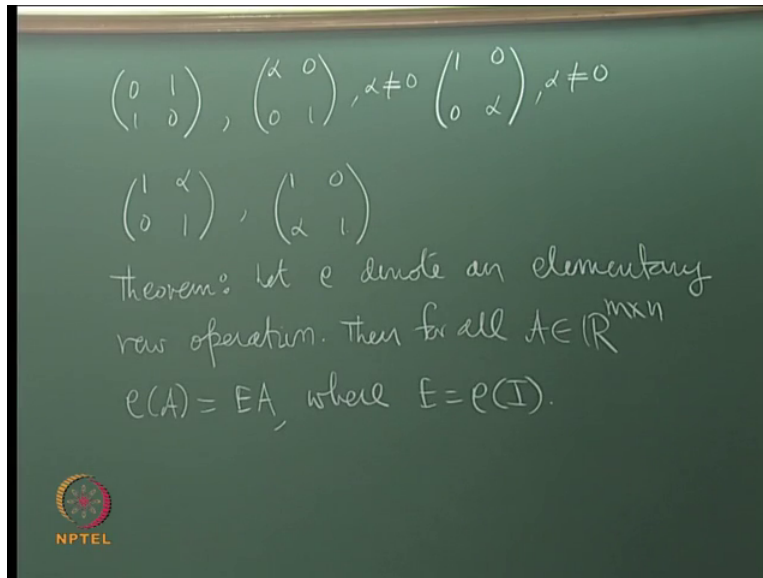 (0 1; 1 0), (α 0; 0 1), α≠0 (1 0; 0 α), α≠0
(1 α; 0 1), (1 0; α 1)
Theorem: Let e denote an elementary
row operation. Then for all A∈ℝ^{m×n}
e(A) = EA, where E=e(I).
NPTEL